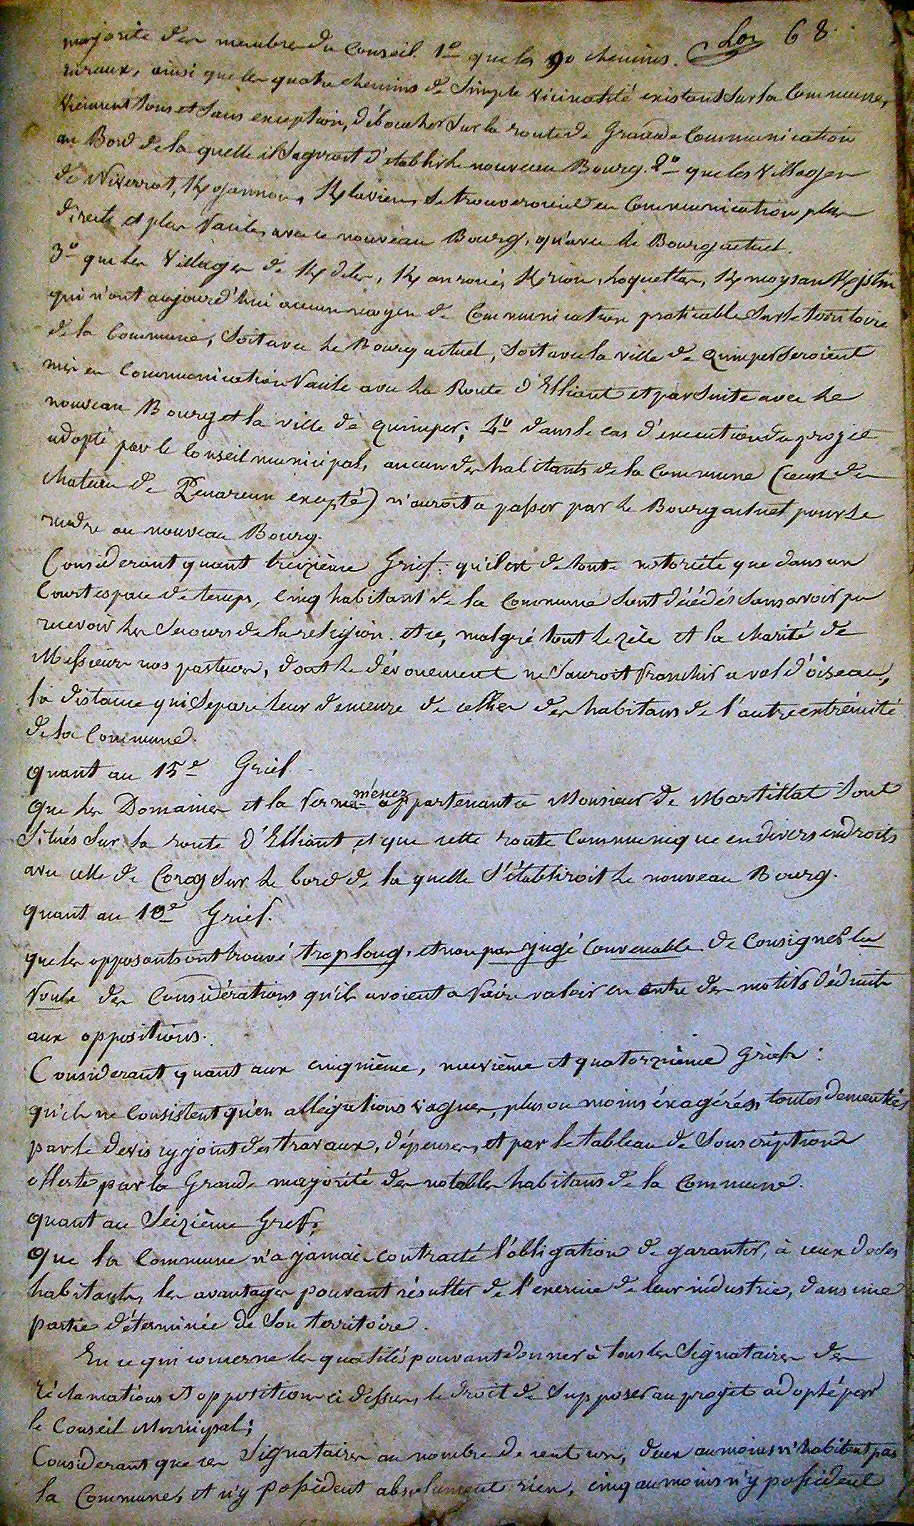 68
majorité des membres du Conseil. 1º que les 90 chemins
ruraux, ainsi que les quatre chemins de Simple vicinalité existant sur la Commune,
viennent tous et sans exception, déboucher sur la route de Grande Communication
au Bord de la quelle il s'agiroit d'établir le nouveau Bourg. 2º que les Villages
de Niverrot, Kojannou, Klavien, se trouveroient en Communication plus
directe et plus facile, avec le nouveau Bourg, qu'avec le Bourg actuel.
3º que les Villages de Kdiles, Kanroué, Krion, hoquettes, Kmoysan Kjstin
qui n'ont aujourd'hui aucun moyen de Communication praticable sur le territoire
de la Commune, soit avec le Bourg actuel, soit avec la ville de quimper seroient
mis en Communication facile avec la Route d'Elliant et par suite avec le
nouveau Bourg et la ville de quimper; 4º dans le cas d'execution du projet
adopté par le Conseil municipal, aucun des habitants de la Commune (ceux du
chateau de Penareun excepté) n'auroit a passer par le Bourg actuel pour se
rendre au nouveau Bourg.
Considerant quant treizième Grief: qu'il est de toute notoriété que dans un
Court espace de temps, cinq habitant de la Commune sont décédés sans avoir pu
recevoir les Secours de la religion. et ce, malgré tout le zèle et la charité de
Messieurs nos pasteurs, dont le dévouement ne sauroit franchir a vol d'oiseau,
la distance qui Separe leur demeure de celles des habitans de l'autre extrémité
de la Commune.
quant au 15e Grief.
que les Domaines et la ferme ménez appartenant a Monsieur de Martillat Sont
Situés sur la route d'Elliant, et que cette route Communique en divers endroits
avec celle de Coray sur le bord de la quelle S'établiroit le nouveau Bourg.
quant au 10e Grief.
que les opposants ont trouvé trop long, et non pas jugé Convenable de Consigner la
foule des Considérations qu'ils avoient a faire valoir en outre des motifs déduits
aux oppositions.
Considerant quant aux cinquième, neuvième et quatorzième Griefs:
qu'ils ne Consistent qu'en allégations vagues, plus ou moins éxagérées, toutes démenties
par le devis cy joint des travaux, dépenses, et par le tableau de Souscriptions
offerte par la Grande majorité des notables habitans de la Commune.
quant au Seizième Grief;
que la Commune n'a jamais contracté l'obligation de garantir, à ceux de ses
habitants, les avantages pouvant résulter de l'exercice de leur industrie, dans une
partie déterminée de Son territoire.
En ce qui concerne les qualité pouvant donner à tous les Signataires des
réclamations et opposition ci dessus, le droit de S'opposer au projet adopté par
le Conseil Municipal;
Considerant que ces Signataires au nombre de cent un, deux au moins n'habitent pas
la Commune, et n'y possèdent absolument rien, cinq au moins n'y possèdent